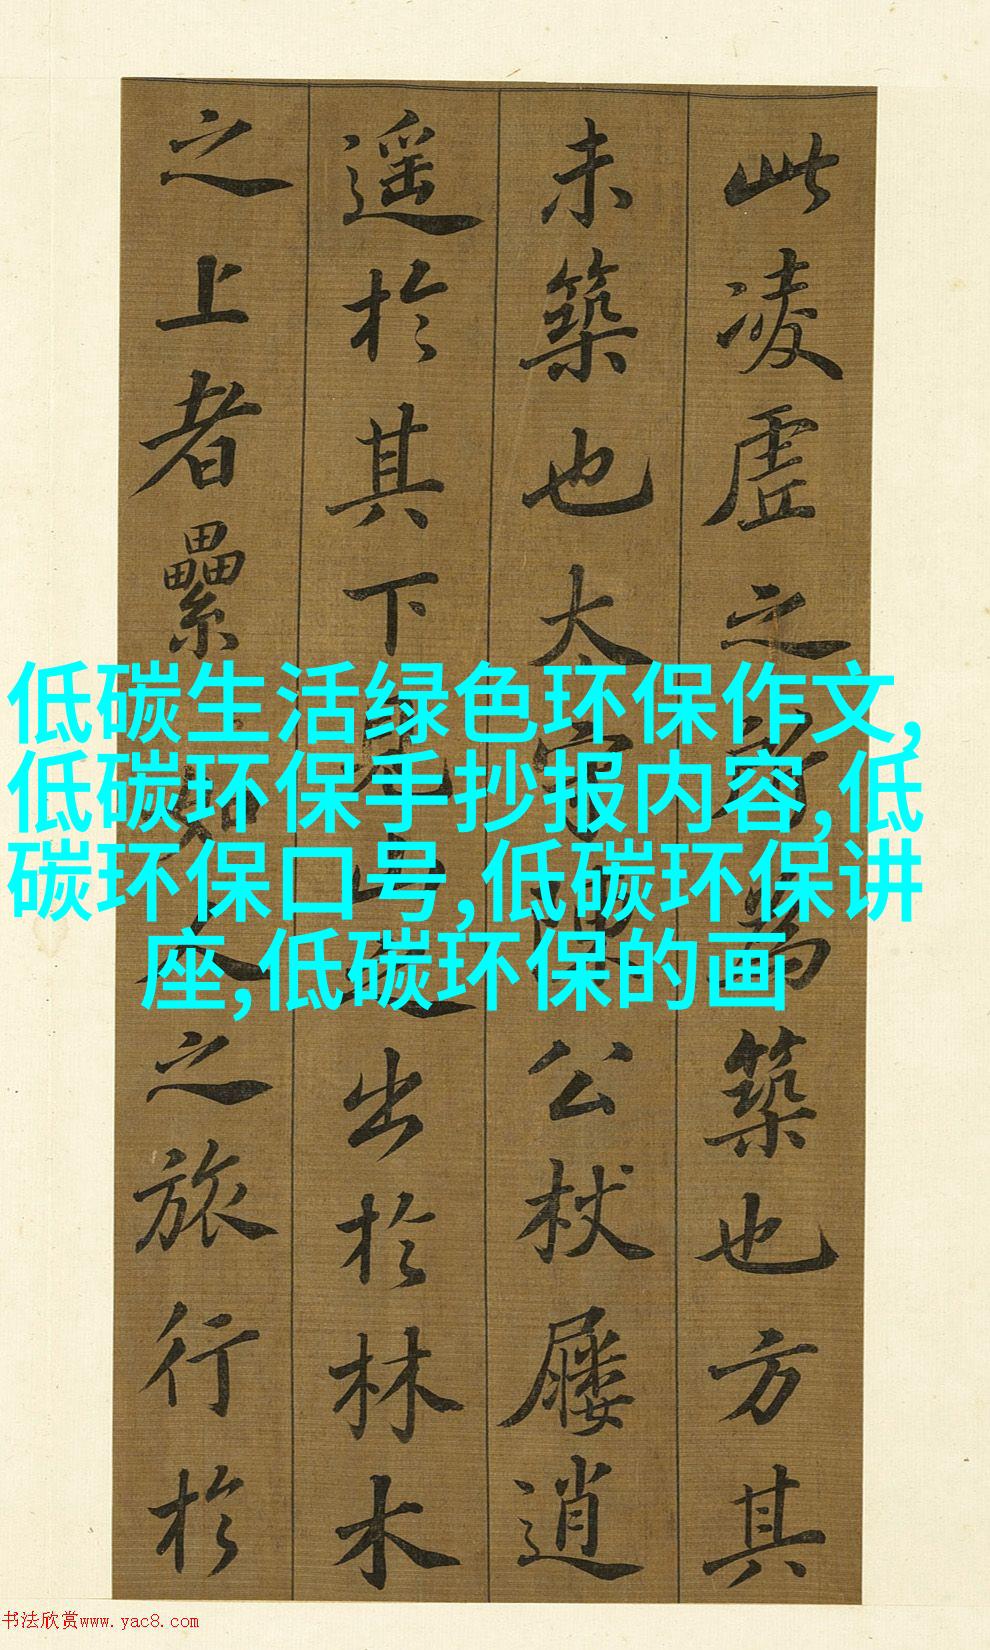 此凌虚之
築也方其
未築也太
公杖屨逍
遥於其下
出於林木
之上者纍
之旅行於
低碳生活绿色环保作文,
低碳环保手抄报内容,低
碳环保口号,低碳环保讲
座,低碳环保的画
书法欣赏www.yac8.com